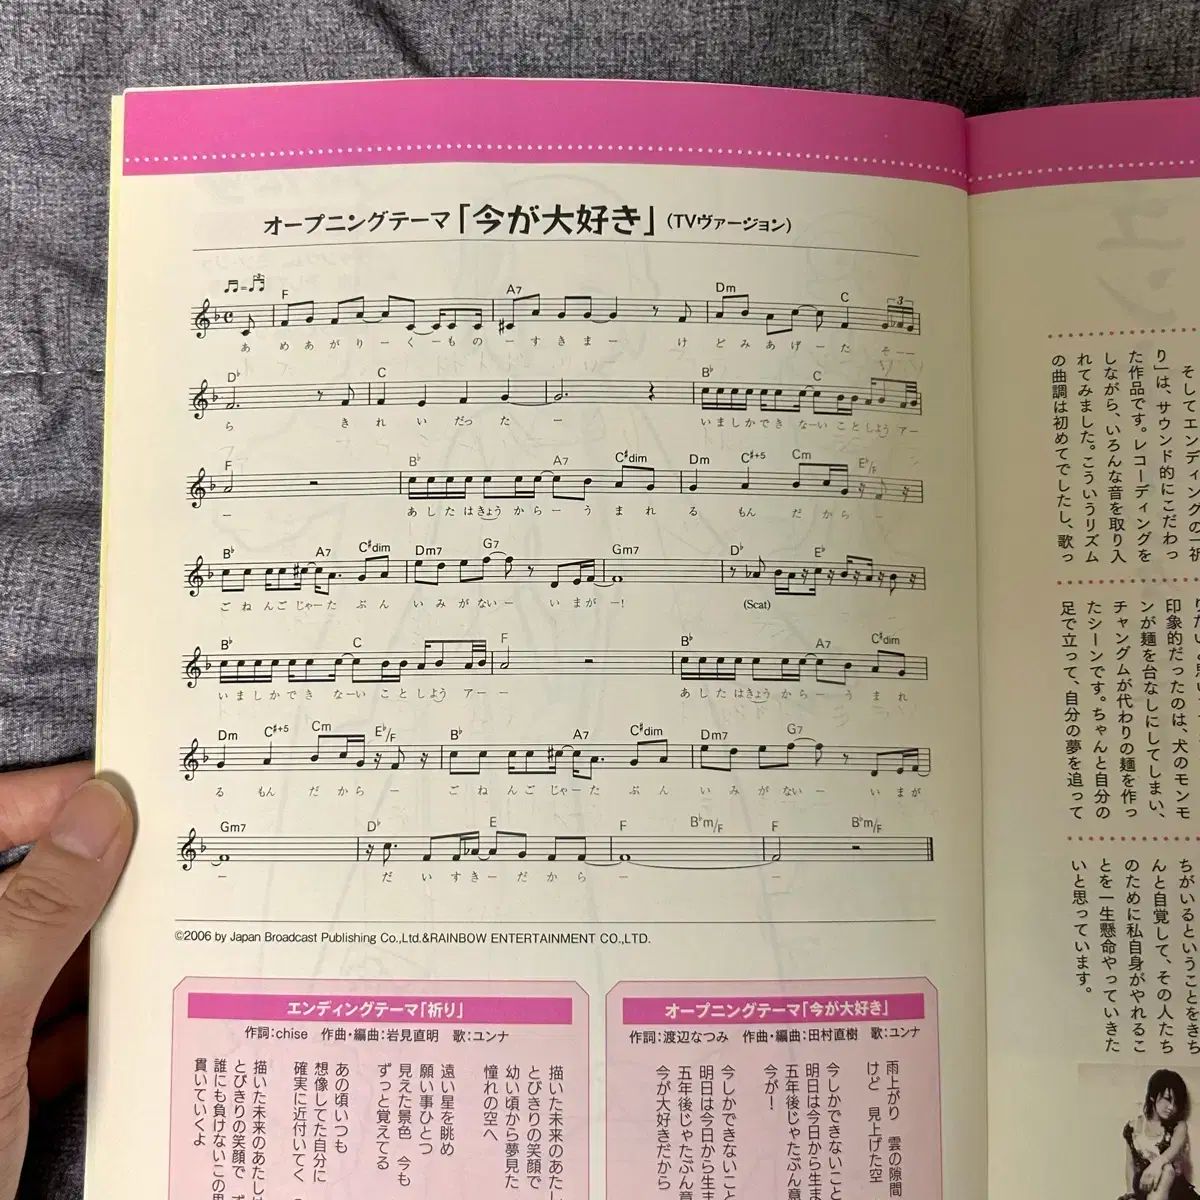 オープニングテーマ「今が大好き」(TVヴァージョン)
F A7 Dm C 3
あ め あ が り ー く ー も の ー す き ま ー け ど み あ げ ー た そ ー ー
D♭ C B♭ C
ら き れ い だっ た ー いましかでき なーい こ と しよう アー
F B♭ A7 C♯dim Dm C♯+5 Cm E♭/F
ー あ し た は きょう か ら ー う ま れ る もん だ か ら ー
B♭ A7 C♯dim Dm7 G7 Gm7 D♭ E♭
ご ね ん ご じゃー た ぶ ん い み が な い ー い ま が ー! (Scat)
B♭ C F B♭ A7 C♯dim
い ま し か で き なーい こ と しよう アー ー あ し た は きょう か ら ー う ま れ
Dm C♯+5 Cm E♭/F B♭ A7 C♯dim Dm7 G7
る もん だ か ら ー ご ね ん ご じゃー た ぶ ん い み が な い ー い ま が
Gm7 D♭ E F B♭m/F F B♭m/F
ー だ い す き ー だ か ら ー ー
©2006 by Japan Broadcast Publishing Co.,Ltd.&RAINBOW ENTERTAINMENT CO.,LTD.
エンディングテーマ「祈り」
作詞:chise 作曲・編曲:岩見直明 歌:ユンナ
描いた未来のあたし
とびきりの笑顔で
幼い頃から夢見た
憧れの空へ
遠い星を眺め
願い事ひとつ
見えた景色 今も
ずっと覚えてる
あの頃いつも
想像してた自分に
確実に近付いてく
描いた未来のあたしは
とびきりの笑顔で
誰にも負けないこの思
貫いていくよ
オープニングテーマ「今が大好き」
作詞:渡辺なつみ 作曲・編曲:田村直樹 歌:ユンナ
雨上がり 雲の隙間
けど 見上げた空
今しかできないこと
明日は今日から生ま
五年後じゃたぶん意
今が!
今しかできないこと
明日は今日から生ま
五年後じゃたぶん意
今が大好きだから
ユン
そしてエンディングの「祈
り」は、サウンド的にこだわっ
た作品です。レコーディングを
しながら、いろんな音を取り入
れてみました。こういうリズム
の曲調は初めてでしたし、歌っ
印象的だったのは、犬のモンモ
ンが麺を台なしにしてしまい、
チャングムが代わりの麺を作っ
たシーンです。ちゃんと自分の
足で立って、自分の夢を追って
ちがいるということをきち
んと自覚して、その人たち
のために私自身がやれるこ
とを一生懸命やっていきた
いと思っています。